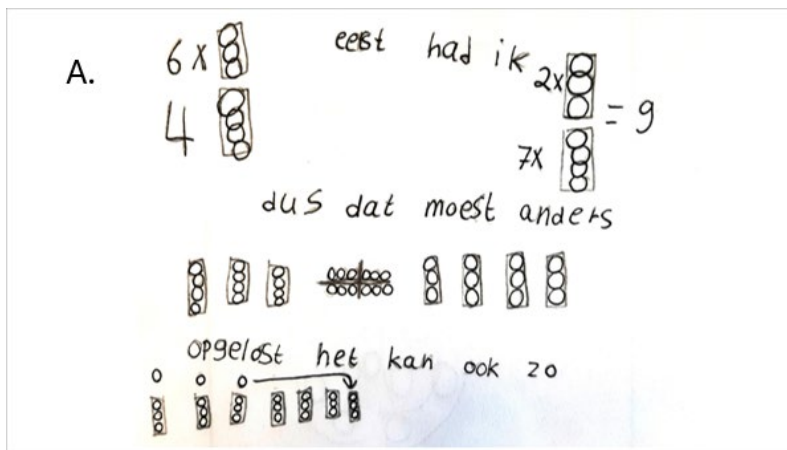 A.
6 x
4
eerst had ik
2x
7x
= 9
dus dat moest anders
opgelost het kan ook zo